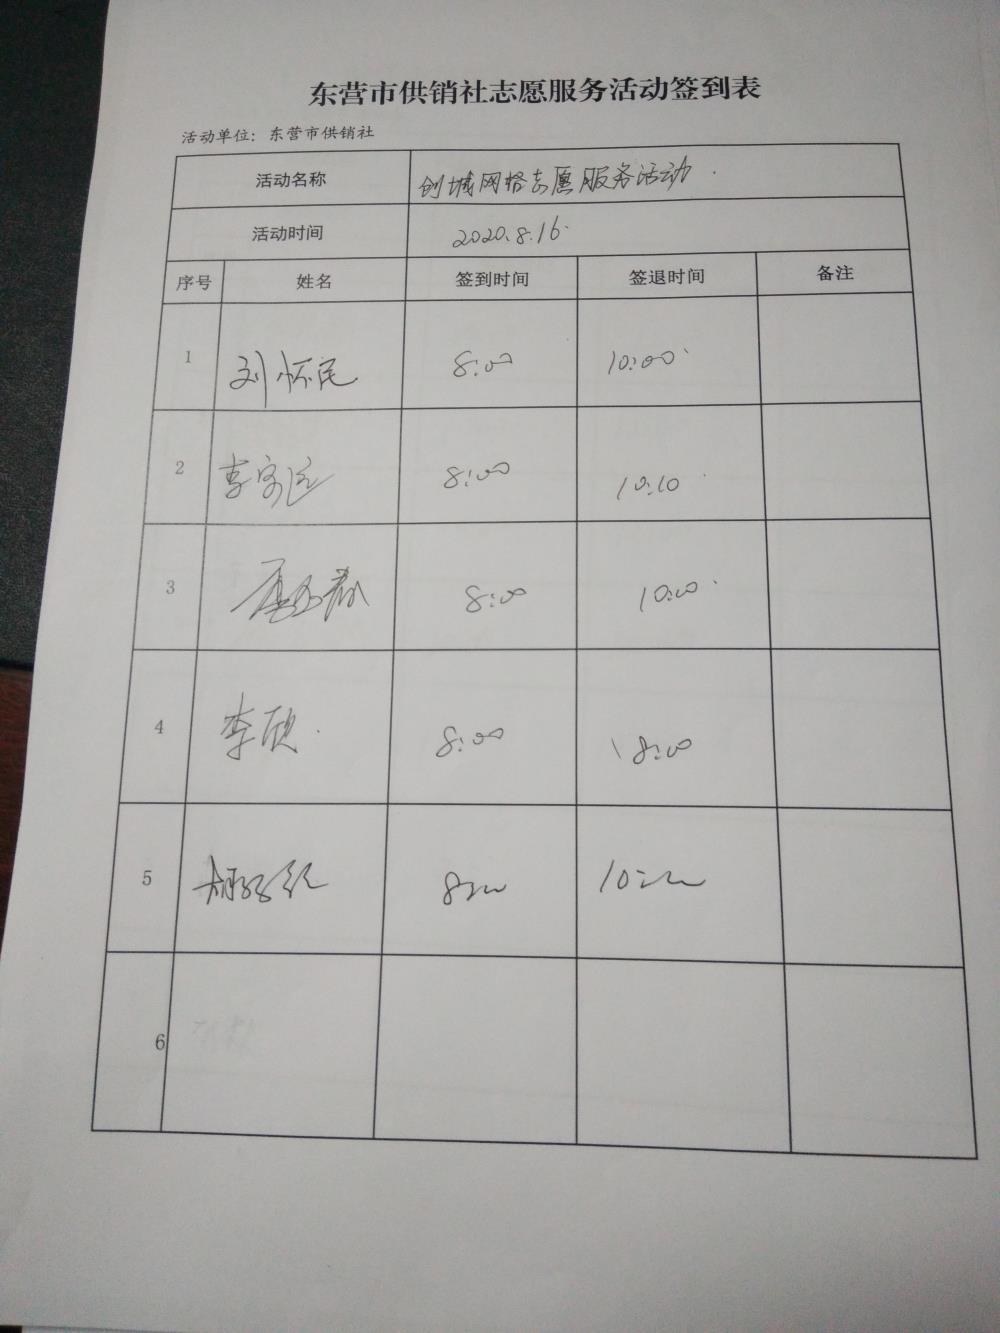 东营市供销社志愿服务活动签到表
活动单位：东营市供销社
活动名称 创城网格志愿服务活动
活动时间 2020.8.16
序号 姓名 签到时间 签退时间 备注
1 刘怀民 8:00 10:00
2 李家运 8:00 10:10
3 8:00 10:00
4 李欣 8:00 18:00
5 8:00 10:00
6